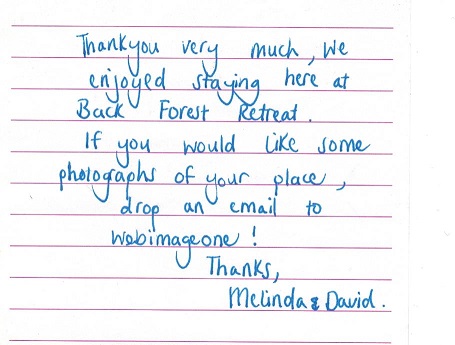 Thankyou very much, we
enjoyed staying here at
Back Forest Retreat.
If you would like some
photographs of your place,
drop an email to
webimageone!
Thanks,
Melinda & David.